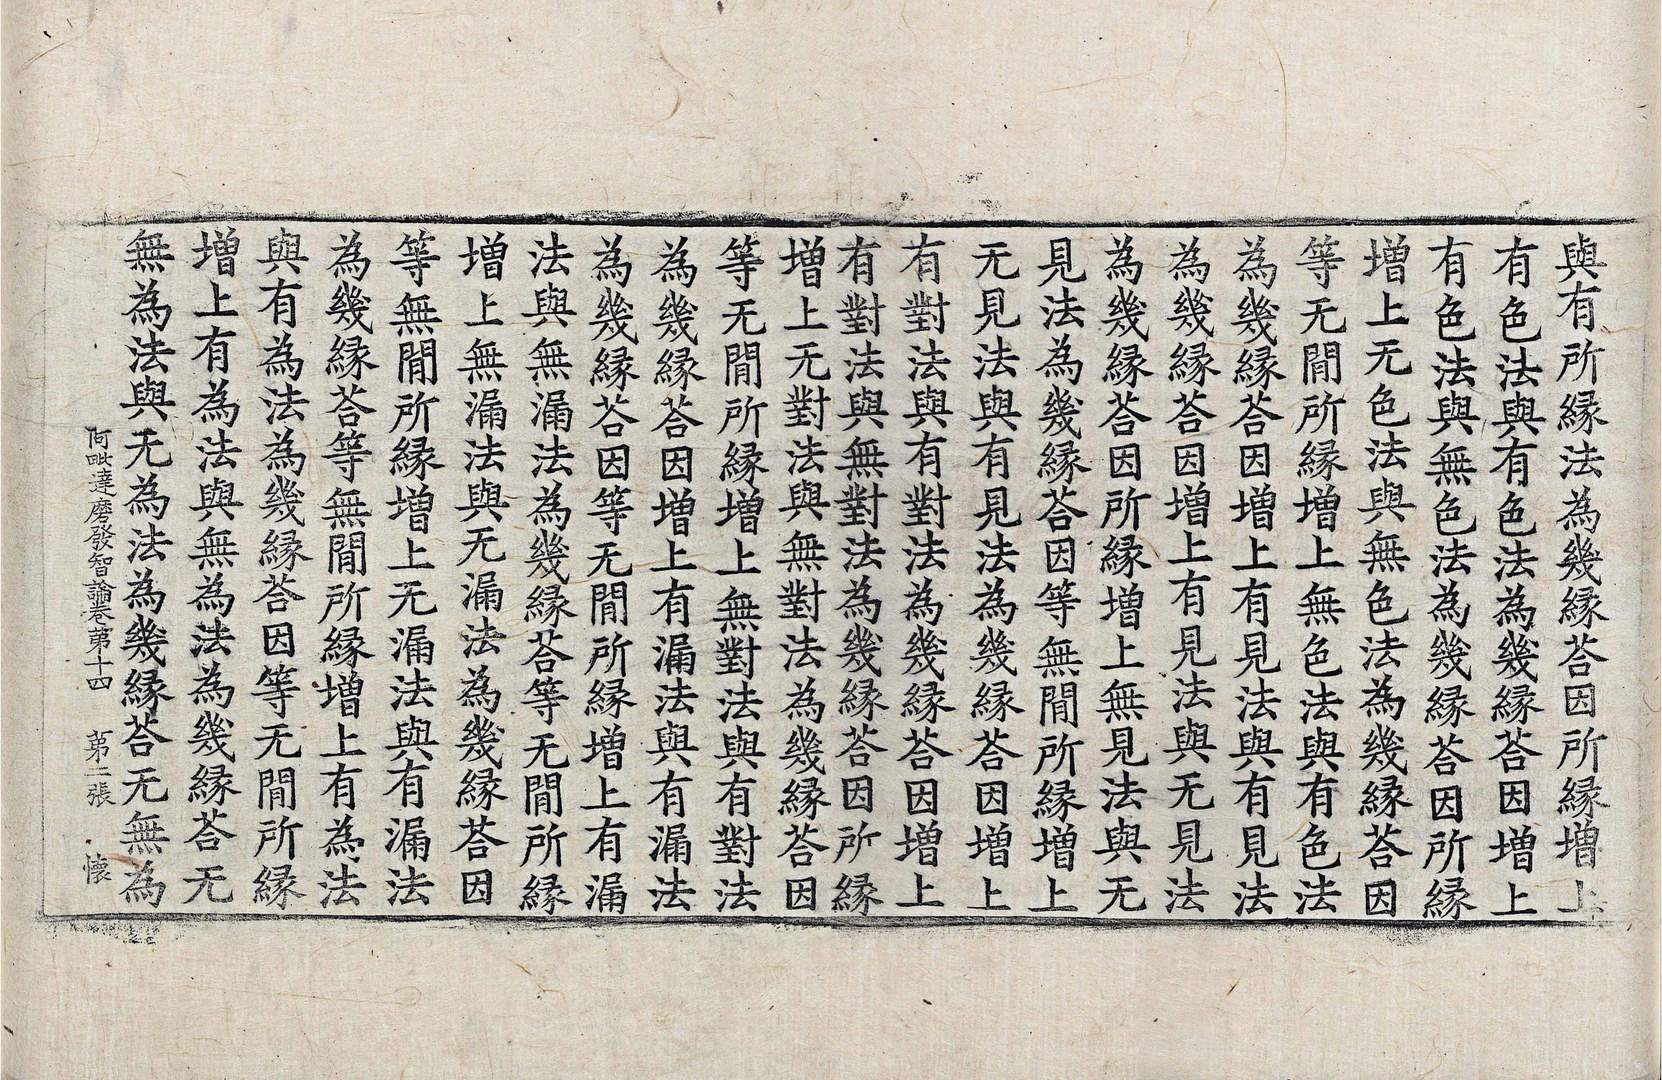 與有所縁法為幾縁荅因所縁增上
有色法與有色法為幾縁荅因增上
有色法與無色法為幾縁荅因所縁
增上无色法與無色法為幾縁荅因
等无間所縁增上無色法與有色法
為幾縁荅因增上有見法與有見法
為幾縁荅因增上有見法與无見法
為幾縁荅因所縁增上無見法與无
見法為幾縁荅因等無間所縁增上
无見法與有見法為幾縁荅因增上
有對法與有對法為幾縁荅因增上
有對法與無對法為幾縁荅因所縁
增上无對法與無對法為幾縁荅因
等无間所縁增上無對法與有對法
為幾縁荅因增上有漏法與有漏法
為幾縁荅因等无間所縁增上有漏
法與無漏法為幾縁荅等无間所縁
增上無漏法與无漏法為幾縁荅因
等無間所縁增上无漏法與有漏法
為幾縁荅等無間所縁增上有為法
與有為法為幾縁荅因等无間所縁
增上有為法與無為法為幾縁荅无
無為法與无為法為幾縁荅无無為
阿毗達磨發智論卷第十四　第二張　懷